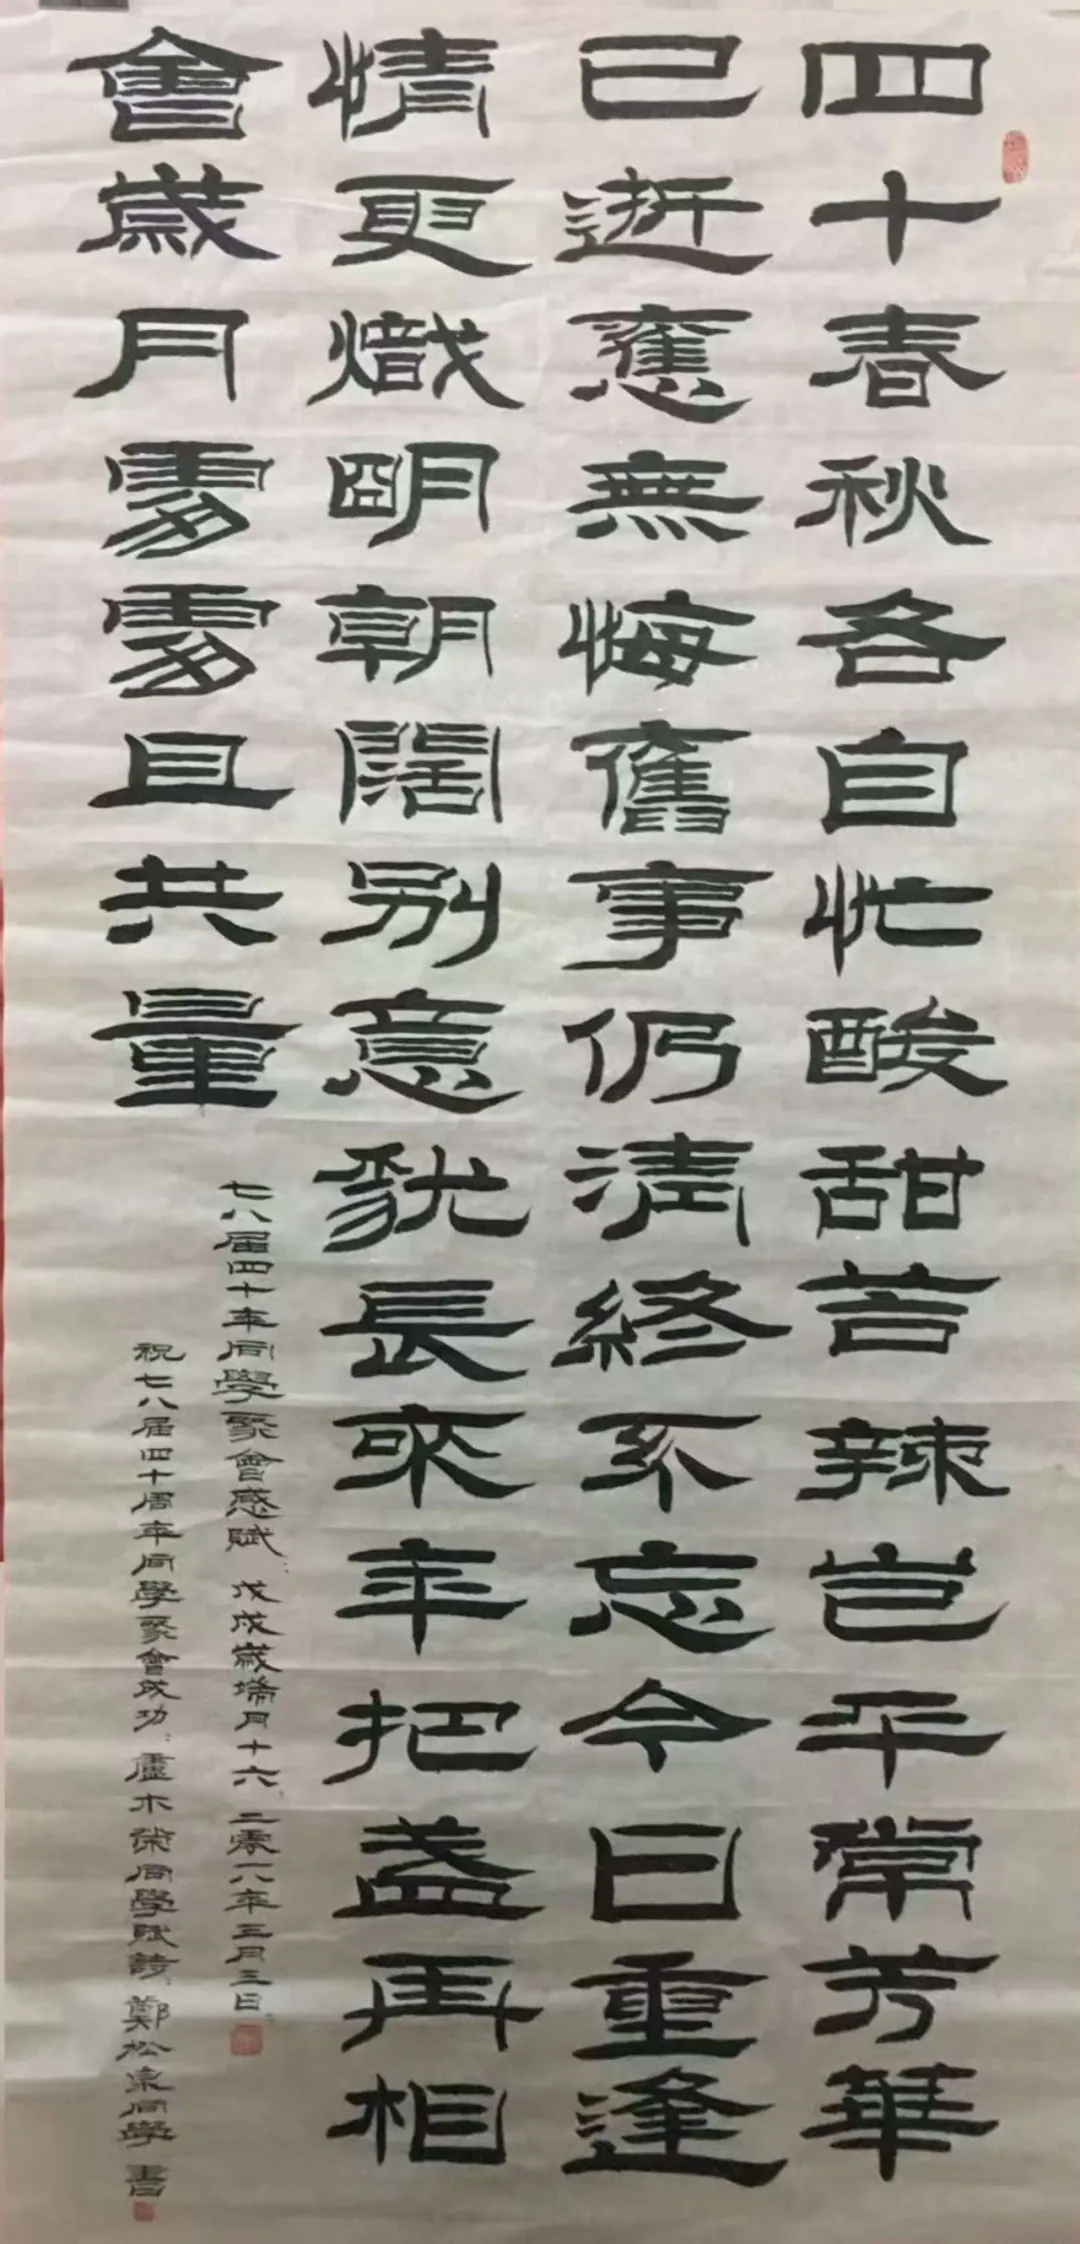 四十春秋各自忙酸甜苦辣豈平常芳華
已逝應無悔舊事仍清終不忘今日重逢
情更熾明朝闊別意猶長來年把盞再相
會歲月寥寥且共量
七八届四十年同學聚會感賦：戊戌歲端月十六、二零一八年三月三日、
祝七八届四十周年同學聚會成功：盧木榮同學賦詩：鄭松泉同學 書